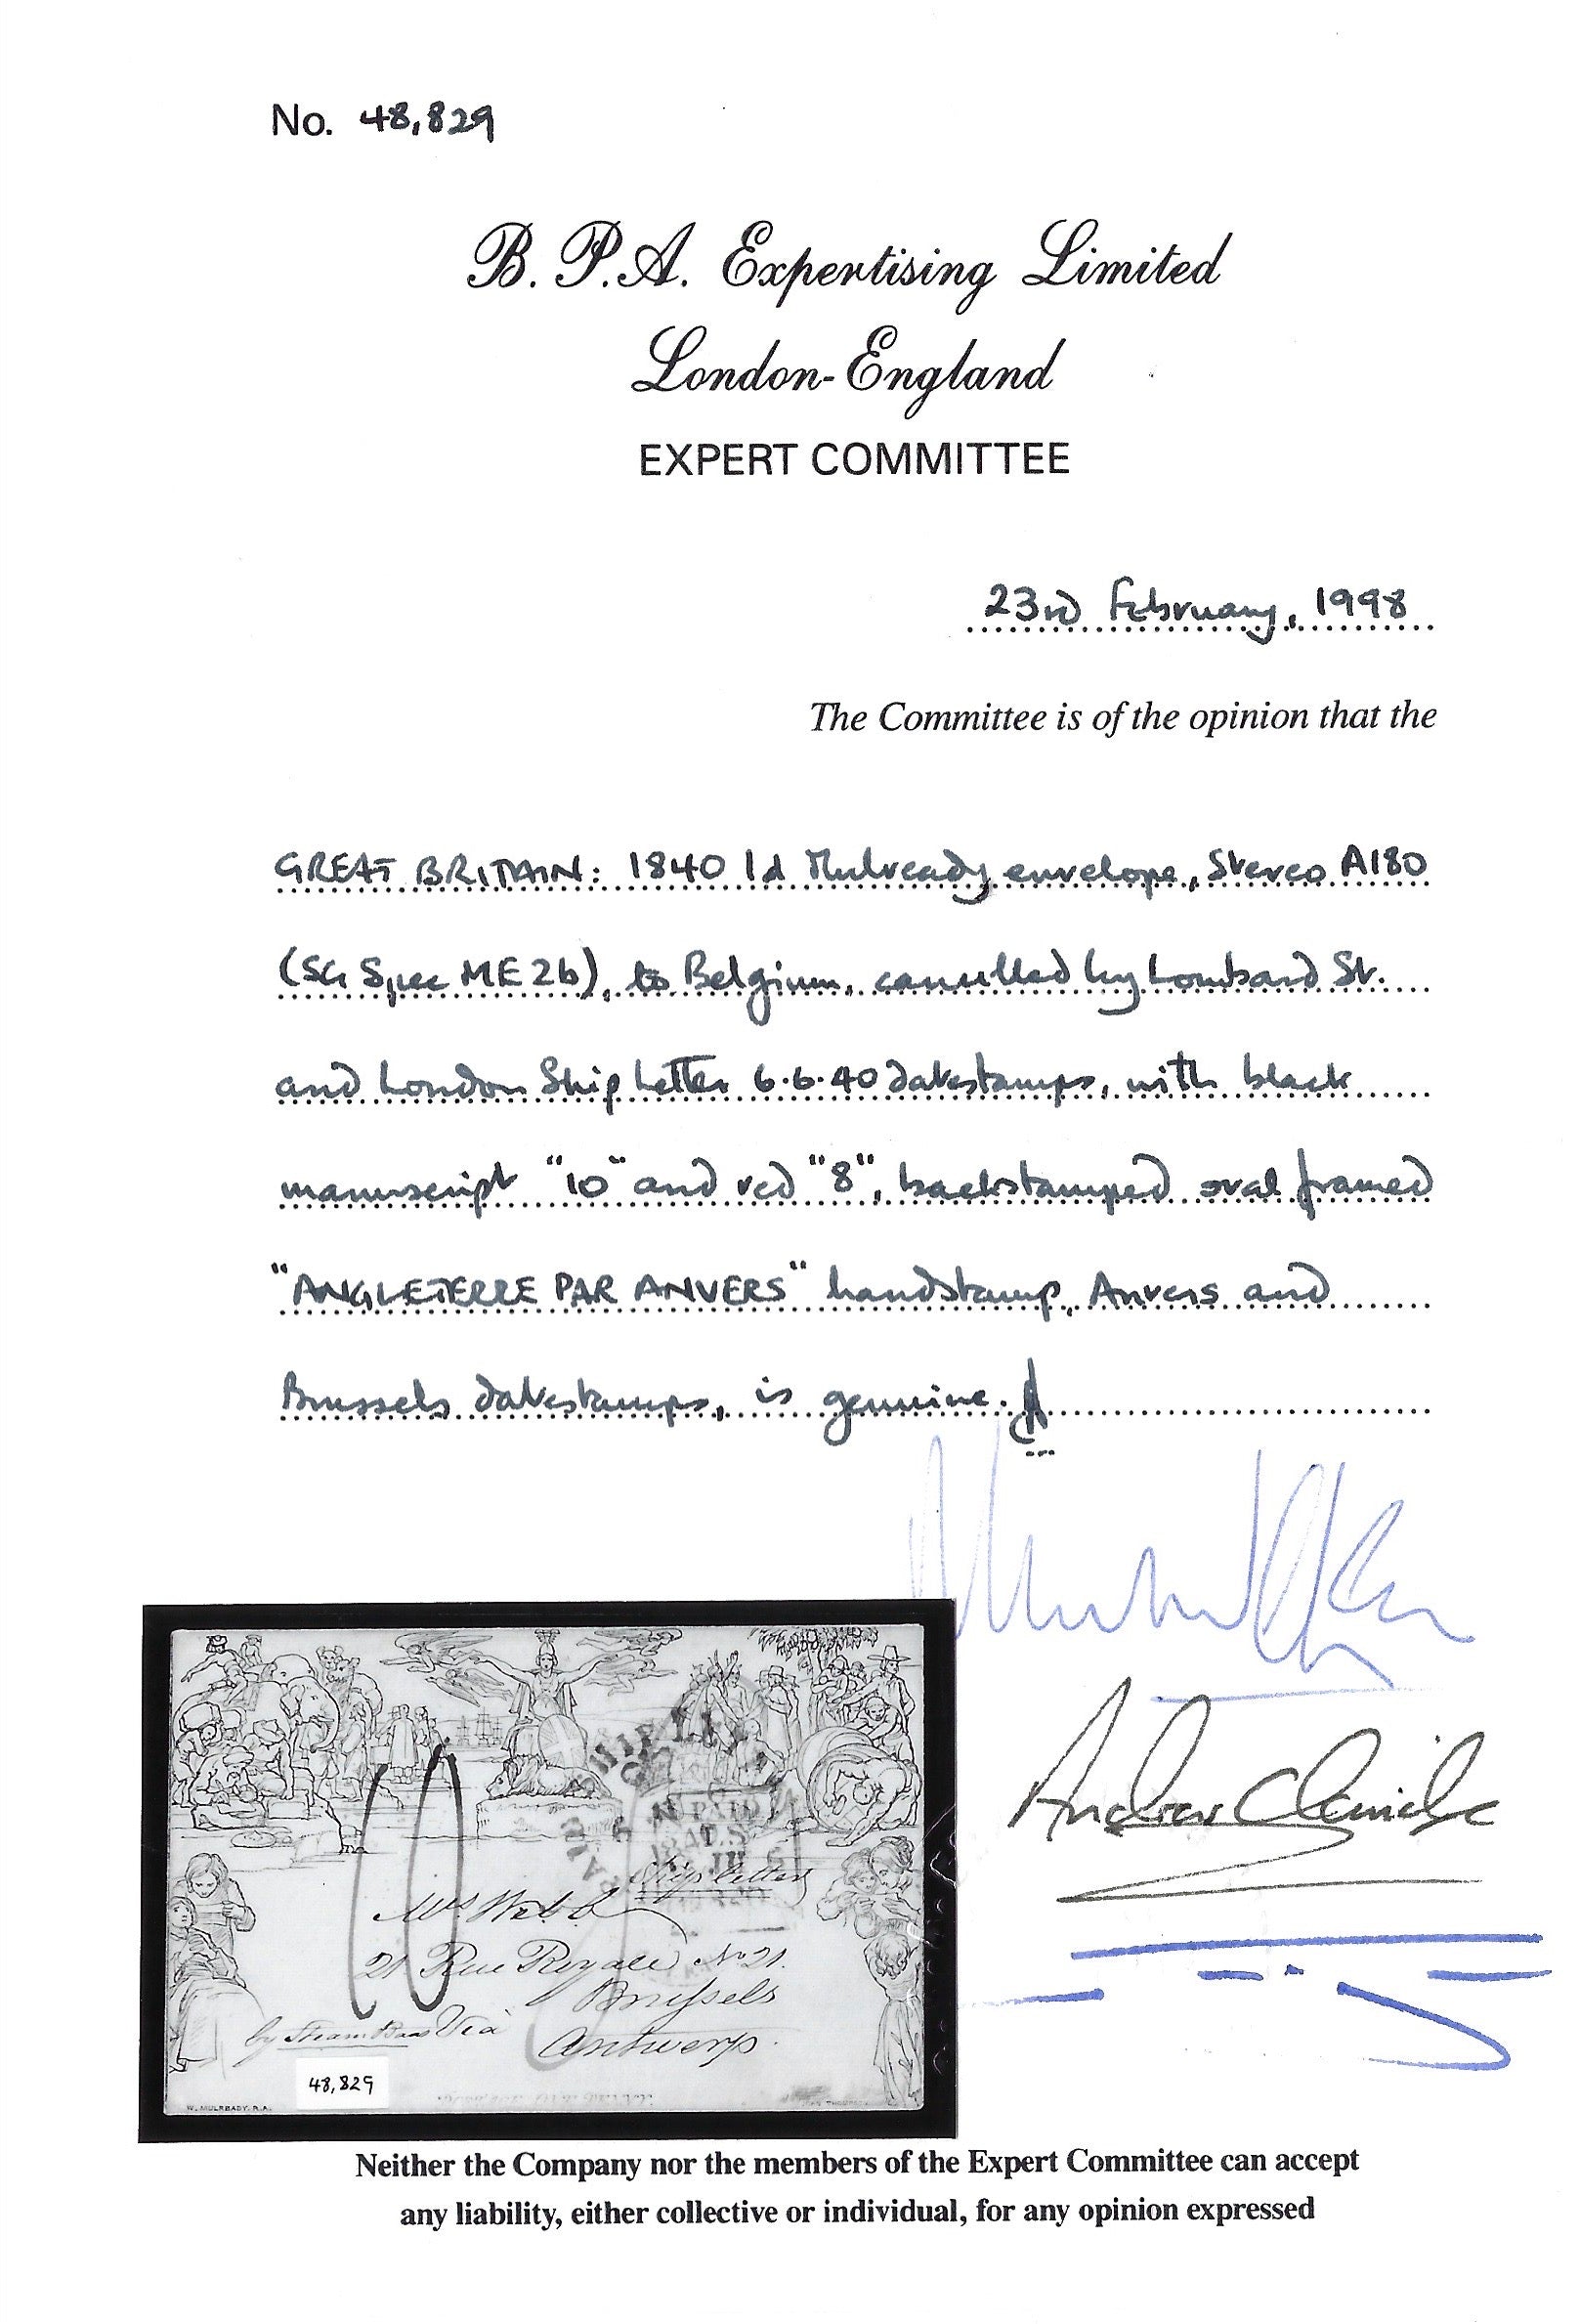 No. 48,829
B. P. A. Expertising Limited
London-England
EXPERT COMMITTEE
23rd February, 1998
The Committee is of the opinion that the
GREAT BRITAIN: 1840 1d Mulready envelope, Stereo A180
(SG Spec ME2b), to Belgium, cancelled by Lombard St.
and London Ship Letter 6.6.40 datestamps, with black
manuscript "10" and red "8", backstamped oval framed
"ANGLETERRE PAR ANVERS" handstamp, Anvers and
Brussels datestamps, is genuine.
10
Ship letter
Mrs Webb
21 Rue Royale No 21.
Brussels
by Steam Via
Antwerp.
48,829
W. MULREADY. R.A.
Neither the Company nor the members of the Expert Committee can accept
any liability, either collective or individual, for any opinion expressed